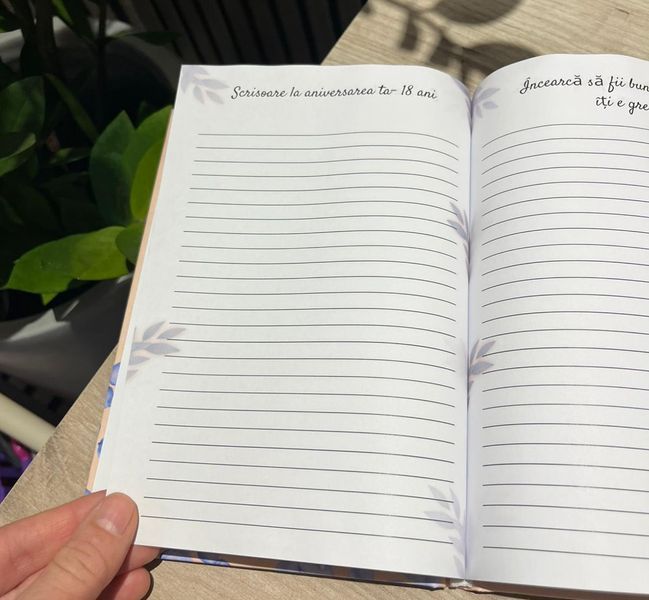 Scrisoare la aniversarea ta- 18 ani
Încearcă să fii bun
îți e gre